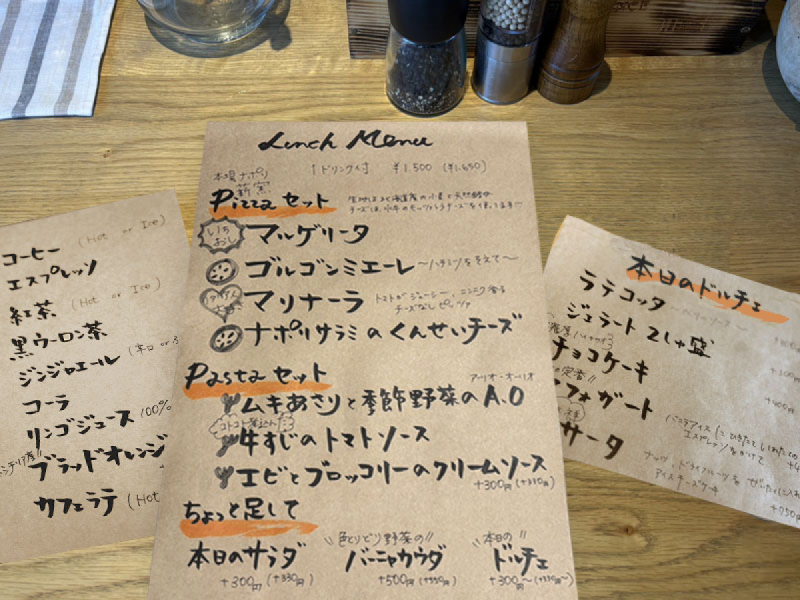 Lunch Menu
1ドリンク付 ¥1.500 (¥1.650)
本場ナポリ
薪窯
Pizza セット
いち
おし
マルゲリータ
ゴルゴンミエーレ 〜ハチミツをそえて〜
マリナーラ
トマトがジューシー、ニンニク香る
チーズなしピッツァ
ナポリサラミのくんせいチーズ
Pasta セット
アーリオ・オーリオ
ムキあさりと季節野菜のA.O
コトコト煮込んだ
牛すじのトマトソース
エビとブロッコリーのクリームソース
+300円 (+330円)
ちょっと足して
本日のサラダ
+300円 (+330円)
色とりどり野菜の
バーニャカウダ
+500円 (+550円)
本日の
ドルチェ
+300円〜 (+330円〜)
コーヒー (Hot or Ice)
エスプレッソ
紅茶 (Hot or Ice)
黒ウーロン茶
ジンジャエール
コーラ
リンゴジュース 100%
ブラッドオレンジ
カフェラテ (Hot
本日のドルチェ
ラテコッタ
ジェラート 2しゅ盛
チョコケーキ
フォガート
バニラアイスに
エスプレッソをかけて
サータ
ナッツ・ドライフルーツを
アイスチーズケーキ